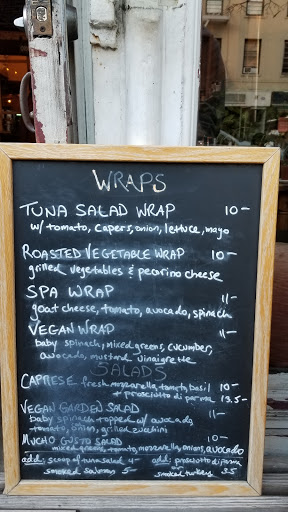 WRAPS
TUNA SALAD WRAP 10-
w/ tomato, capers, onion, lettuce, mayo
ROASTED VEGETABLE WRAP 10-
grilled vegetables & pecorino cheese
SPA WRAP 11-
goat cheese, tomato, avocado, spinach
VEGAN WRAP 11-
baby spinach, mixed greens, cucumber,
avocado, mustard vinaigrette
SALADS
CAPRESE fresh mozzarella, tomato, basil 10-
+ prosciutto di parma 13.5-
VEGAN GARDEN SALAD 11-
baby spinach topped w/ avocado
tomato, onion, grilled zucchini
MUCHO GUSTO SALAD 11-
mixed greens, tomato, mozzarella, onions, avocado
add: scoop of tuna salad 4- add: prosciutto di parma
smoked salmon 5- smoked turkey 3.5